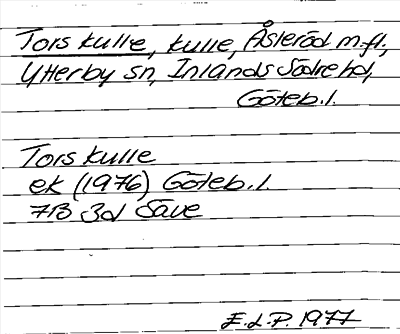 Tors kulle, kulle, Åsleröd m.fl.,
Ytterby sn, Inlands Södre hd,
Göteb. l.
Tors kulle
ek (1976) Göteb. l.
7B 3d Säve
E.L.P. 1977